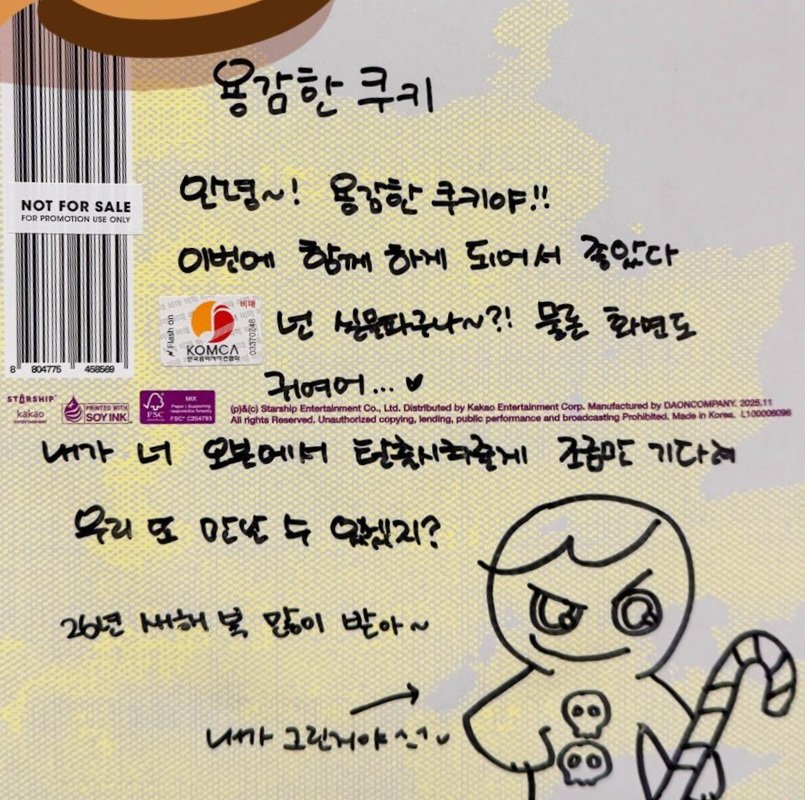 용감한 쿠키
안녕~! 용감한 쿠키야!!
NOT FOR SALE
FOR PROMOTION USE ONLY
이번에 함께 하게 되어서 좋았다
비매
Flash on
KOMCA
한국음악저작권협회
03370248
넌 실물파구나~?! 물론 화면도
귀여어...♥
8 804775 458569
STARSHIP
kakao
ENTERTAINMENT
PRINTED WITH
SOY INK
FSC
MIX
Paper | Supporting
responsible forestry
FSC® C204793
(p)&(c) Starship Entertainment Co., Ltd. Distributed by Kakao Entertainment Corp. Manufactured by DAONCOMPANY. 2025.11
All rights Reserved. Unauthorized copying, lending, public performance and broadcasting Prohibited. Made in Korea. L100006096
내가 너 오븐에서 탈출시켜줄게 조금만 기다려
우리 또 만날 수 있겠지?
26년 새해 복 많이 받아~
내가 그린거야^-^